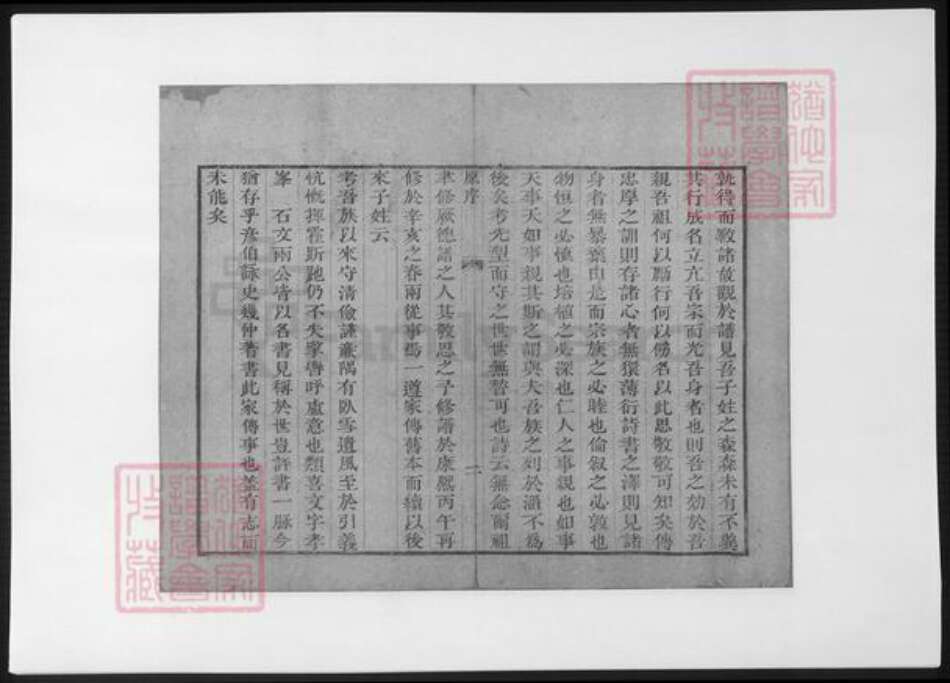 孰得而斁諸故觀於譜見吾子姓之森森未有不冀
其行成名立亢吾宗而光吾身者也則吾之効於吾
親吾祖何以顯行何以傍名以此思敬敬可知矣傳
忠厚之訓則存諸心者無獧薄衍詩書之澤則見諸
身者無暴棄由是而宗族之必睦也倫叙之必敦也
物恒之必慎也培植之必深也仁人之事親也如事
天事天如事親其斯之謂與夫吾族之列於涵不為
後矣考先型而守之世世無替可也詩云無念爾祖
原序
二
聿修厥德譜之人其敦思之予修譜於康熙丙午再
修於辛亥之春兩從事焉一遵家傳舊本而續以後
來子姓云
考吾族以來守清儉謹廉隅有臥雪遺風至於引義
忼慨揮霍斯跑仍不失擊轡呼盧意也類喜文字孝
峯 石文兩公皆以名書見稱於世豈許書一脉今
猶存乎彥伯詠史幾仲著書此家傳事也蓋有志而
未能矣